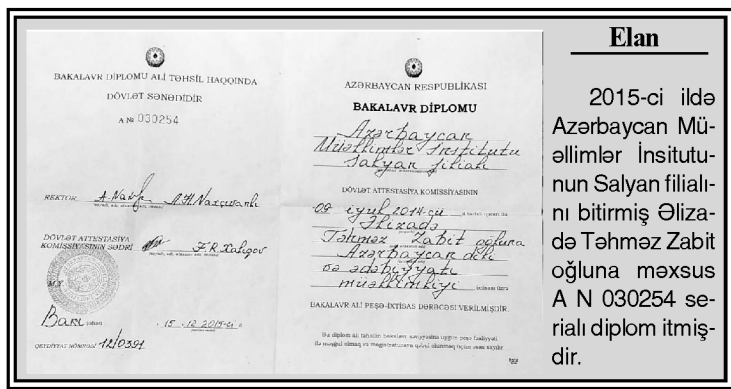 BAKALAVR DİPLOMU ALİ TƏHSİL HAQQINDA
DÖVLƏT SƏNƏDİDİR
A № 030254
REKTOR
DÖVLƏT ATTESTASİYA
KOMİSSİYASININ SƏDRİ F.R.Xalıqov
M.Y.
Bakı şəhəri 15.12.2015-ci il
QEYDİYYAT NÖMRƏSİ 12/0391
AZƏRBAYCAN RESPUBLİKASI
BAKALAVR DİPLOMU
Azərbaycan
Müəllimlər İnstitutu
Salyan filialı
DÖVLƏT ATTESTASİYA KOMİSSİYASININ
iyul 2014-cü
Əlizadə
Təhməz Zabit oğluna
Azərbaycan dili
və ədəbiyyatı
müəllimliyi
BAKALAVR ALİ PEŞƏ-İXTİSAS DƏRƏCƏSİ VERİLMİŞDİR.
Bu diplom ali təhsilin bakalavr səviyyəsinə uyğun peşə fəaliyyəti
ilə məşğul olmaq və magistraturaya qəbul olunmaq üçün əsas sayılır
Elan
2015-ci ildə
Azərbaycan Mü-
əllimlər İnsitutu-
nun Salyan filialı-
nı bitirmiş Əliza-
də Təhməz Zabit
oğluna məxsus
A N 030254 se-
rialı diplom itmiş-
dir.